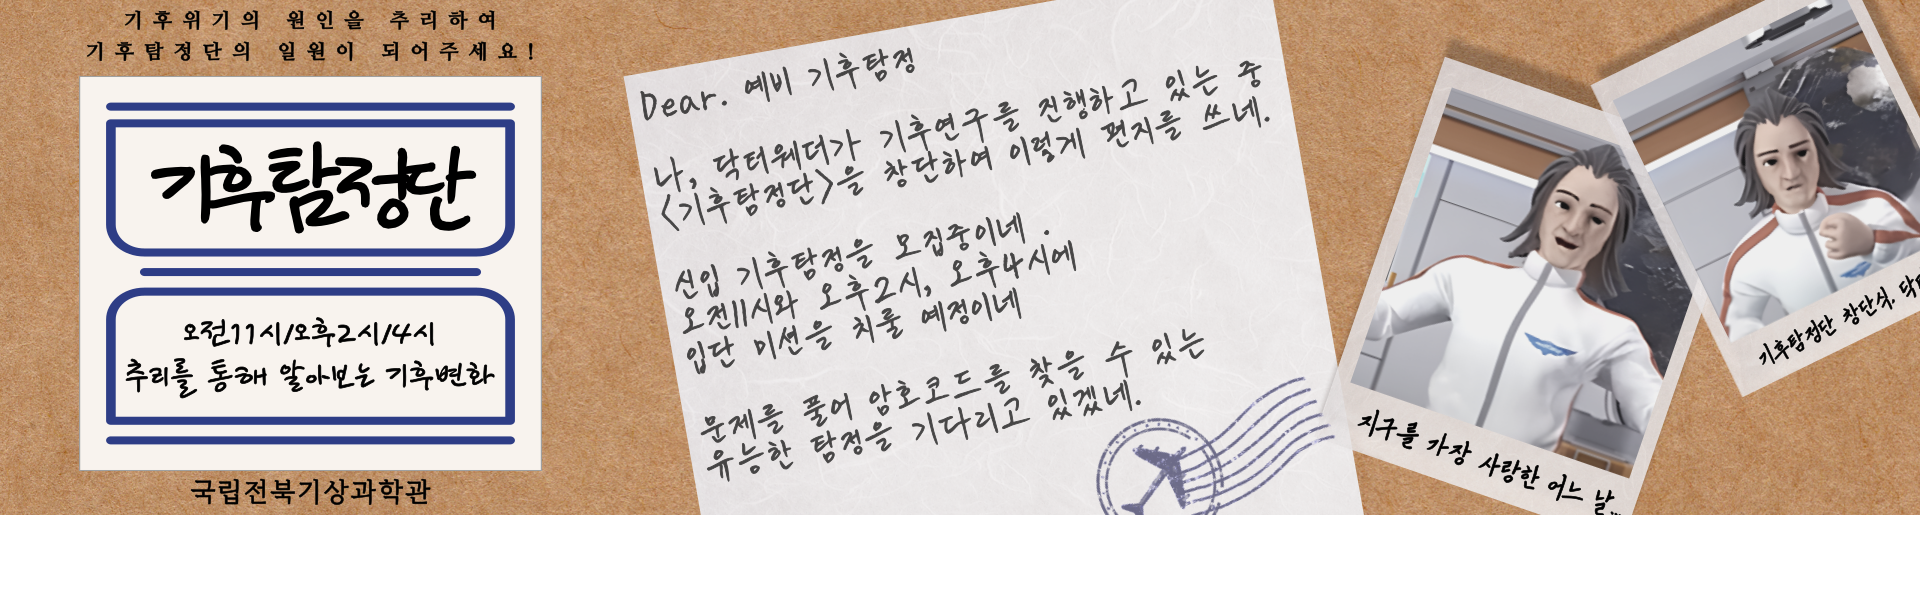 기후위기의 원인을 추리하여
기후탐정단의 일원이 되어주세요!
기후탐정단
오전11시/오후2시/4시
추리를 통해 알아보는 기후변화
국립전북기상과학관
Dear. 예비 기후탐정
나, 닥터웨더가 기후연구를 진행하고 있는 중
<기후탐정단>을 창단하여 이렇게 편지를 쓰네.
신입 기후탐정을 모집중이네.
오전11시와 오후2시, 오후4시에
입단 미션을 치룰 예정이네
문제를 풀어 암호코드를 찾을 수 있는
유능한 탐정을 기다리고 있겠네.
지구를 가장 사랑한 어느 날...
기후탐정단 창단식.